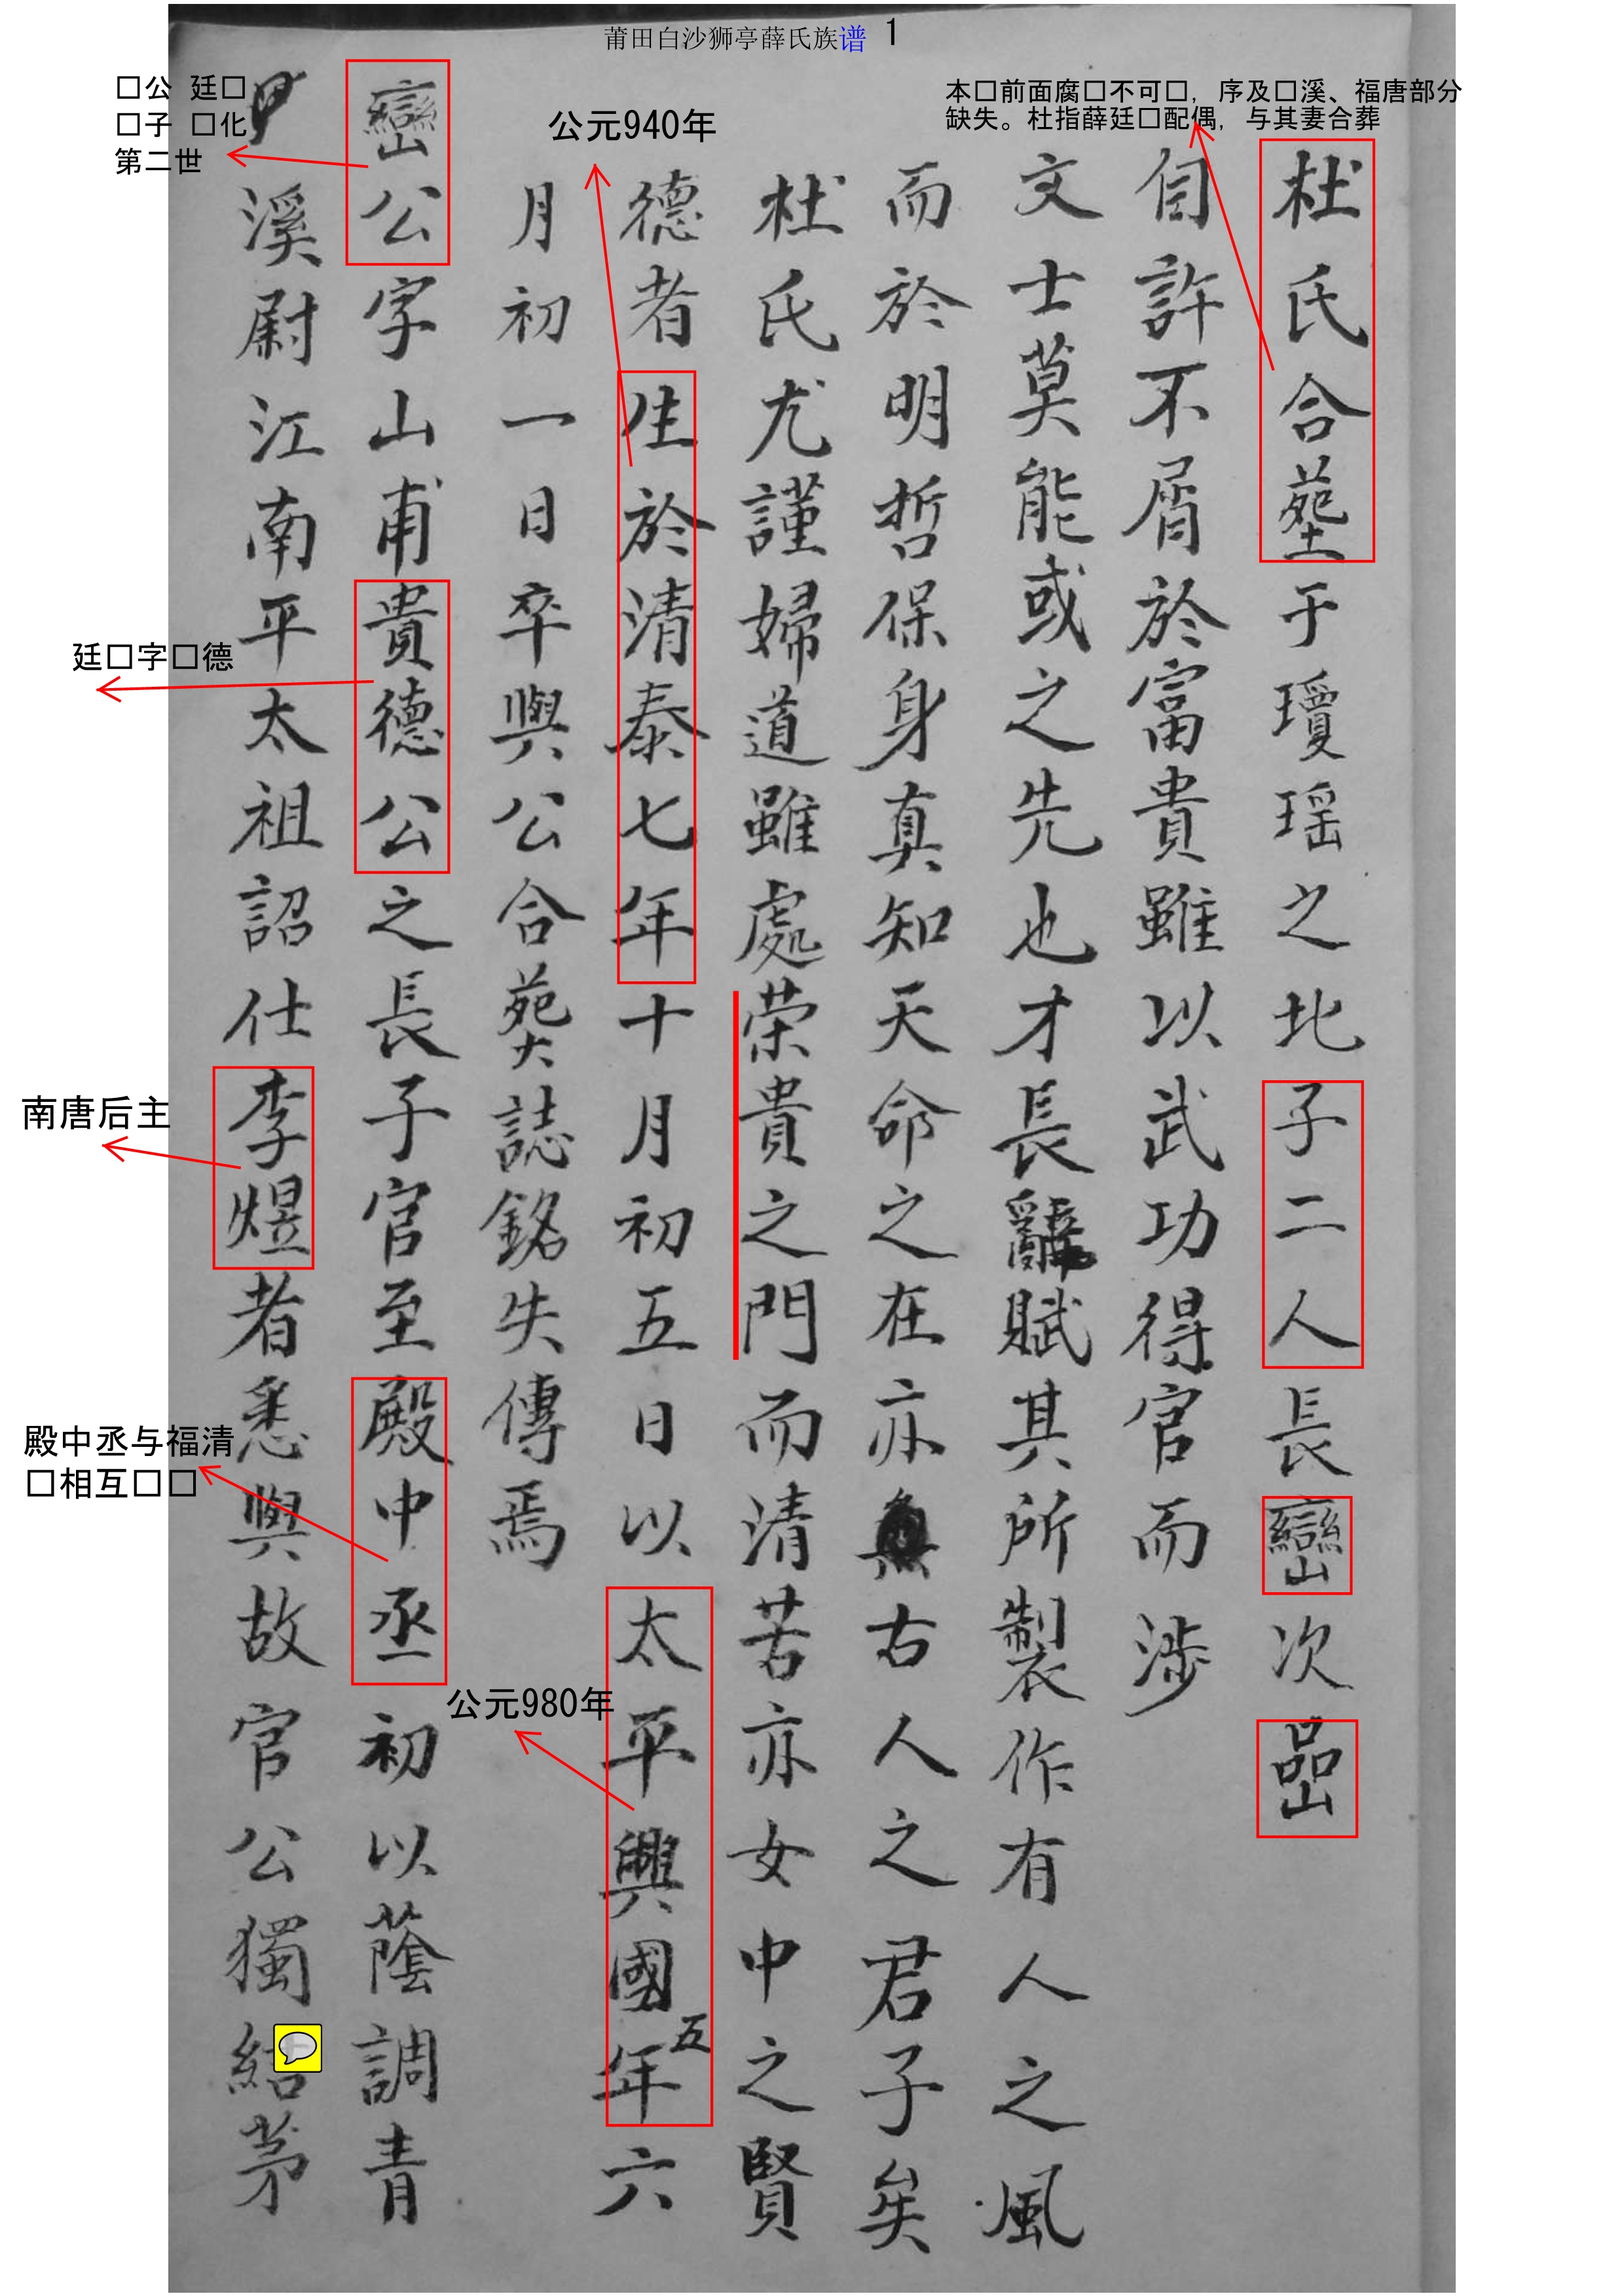 莆田白沙狮亭薛氏族谱 1
本□前面腐□不可□，序及□溪、福唐部分
缺失。杜指薛廷□配偶，与其妻合葬
杜氏合塟于瓊瑶之北子二人長巒次嵒
自許不屑於富貴雖以武功得官而涉
文士莫能或之先也才長辭賦其所製作有人之風
而於明哲保身真知天命之在亦無古人之君子矣
杜氏尤謹婦道雖處荣貴之門而清苦亦女中之賢
公元940年
德者生於清泰七年十月初五日以太平興國五年六
公元980年
月初一日卒與公合葬誌銘失傳焉
巒公字山甫貴德公之長子官至殿中丞初以蔭調青
□公 廷□
□子 □化
第二世
廷□字□德
殿中丞与福清
□相互□□
溪尉江南平太祖詔仕李煜者悉與故官公獨結茅
南唐后主